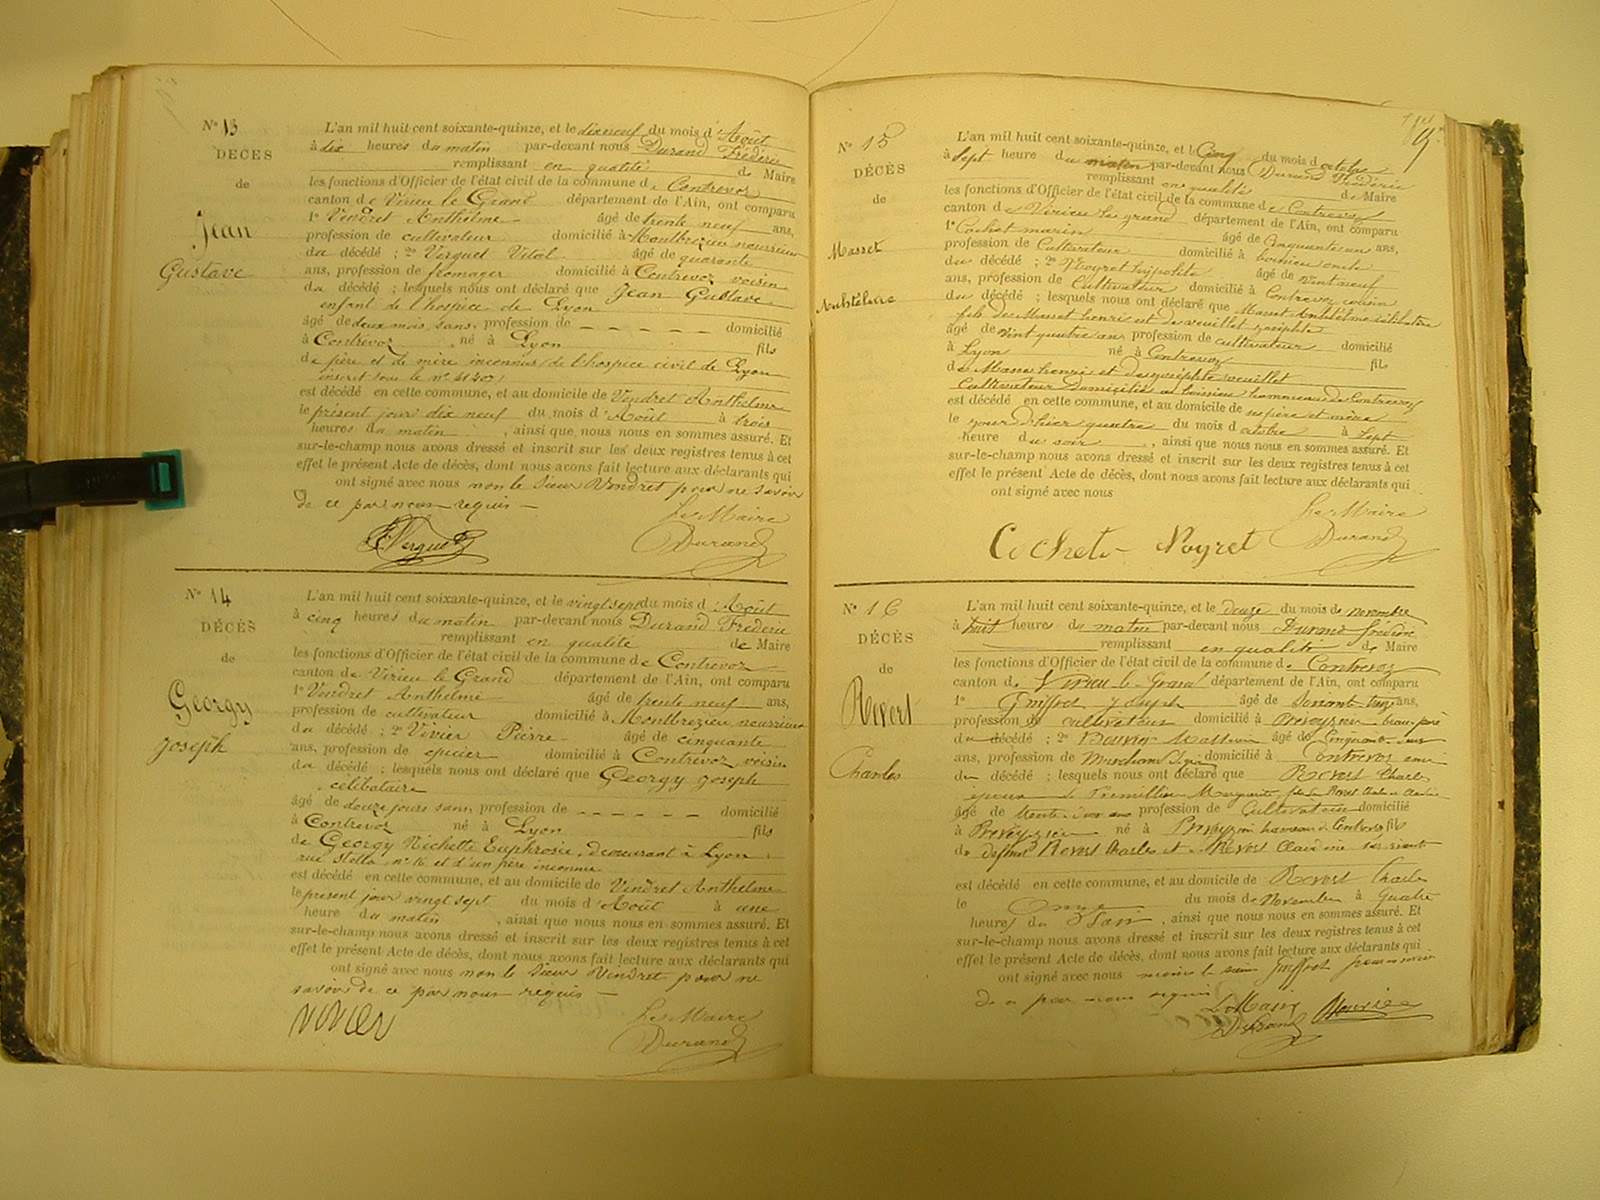 N° 13
DÉCÈS
de
Jean
Gustave
L'an mil huit cent soixante-quinze, et le dix neuf du mois d'Août
à dix heures du matin par-devant nous Durand Frédéric
remplissant en qualité de Maire
les fonctions d'Officier de l'état civil de la commune de Contrevoz
canton de Virieu le Grand département de l'Ain, ont comparu
1° Vendret Anthelme âgé de trente neuf ans,
profession de cultivateur domicilié à Montbrezieu nourricier
du décédé ; 2° Verguet Vital âgé de quarante
ans, profession de fromager domicilié à Contrevoz voisin
du décédé ; lesquels nous ont déclaré que Jean Gustave
enfant de l'hospice de Lyon
âgé de deux mois, sans profession de – – – – – domicilié
à Contrevoz né à Lyon fils
de père et de mère inconnus de l'hospice civil de Lyon
inscrit sous le n°
est décédé en cette commune, et au domicile de Vendret Anthelme
le présent jour dix neuf du mois d'Août à trois
heures du matin, ainsi que nous nous en sommes assuré. Et
sur-le-champ nous avons dressé et inscrit sur les deux registres tenus à cet
effet le présent Acte de décès, dont nous avons fait lecture aux déclarants qui
ont signé avec nous non le sieur Vendret pour ne savoir
de ce par nous requis –
Le Maire
Verguet Durand
N° 14
DÉCÈS
de
Georgy
Joseph
L'an mil huit cent soixante-quinze, et le vingt sept du mois d'Août
à cinq heures du matin par-devant nous Durand Frédéric
remplissant en qualité de Maire
les fonctions d'Officier de l'état civil de la commune de Contrevoz
canton de Virieu le Grand département de l'Ain, ont comparu
1° Vendret Anthelme âgé de trente neuf ans,
profession de cultivateur domicilié à Montbrezieu nourricier
du décédé ; 2° Vivier Pierre âgé de cinquante
ans, profession de épicier domicilié à Contrevoz voisin
du décédé ; lesquels nous ont déclaré que Georgy Joseph
célibataire
âgé de douze jours sans profession de – – – – – domicilié
à Contrevoz né à Lyon fils
de Georgy Nichette Euphrosie, demeurant à Lyon
rue Stella, n° 16 et d'un père inconnu
est décédé en cette commune, et au domicile de Vendret Anthelme
le présent jour vingt sept du mois d'Août à une
heure du matin, ainsi que nous nous en sommes assuré. Et
sur-le-champ nous avons dressé et inscrit sur les deux registres tenus à cet
effet le présent Acte de décès, dont nous avons fait lecture aux déclarants qui
ont signé avec nous non le sieur Vendret pour ne
savoir de ce par nous requis –
Vivier Le Maire
Durand
N° 15
DÉCÈS
de
Masset
Anhtelme
L'an mil huit cent soixante-quinze, et le Cinq du mois d'octobre
à Sept heure du matin par-devant nous Durand Frédéric
remplissant en qualité de Maire
les fonctions d'Officier de l'état civil de la commune de Contrevoz
canton de Virieu le grand département de l'Ain, ont comparu
1° Cochet marin âgé de Cinquante un ans,
profession de Cultivateur domicilié à boissieu oncle
du décédé ; 2° Noyret hipolite âgé de vint neuf
ans, profession de Cultivateur domicilié à Contrevoz cousin
du décédé ; lesquels nous ont déclaré que Masset Anhtélme célibataire
fils de Masset henri et de veuillet josephte
âgé de vint quatre ans profession de cultivateur domicilié
à Lyon né à Contrevoz fils
de Masse henri et de josephte veuillet
Cultivateur Domiciliés à boissieu hammeau de Contrevoz
est décédé en cette commune, et au domicile de ses père et mère
le jour d'hier quatre du mois d'octobre à Sept
heure du soir, ainsi que nous nous en sommes assuré. Et
sur-le-champ nous avons dressé et inscrit sur les deux registres tenus à cet
effet le présent Acte de décès, dont nous avons fait lecture aux déclarants qui
ont signé avec nous
Le Maire
Cochet Noyret Durand
N° 16
DÉCÈS
de
Revert
Charles
L'an mil huit cent soixante-quinze, et le douze du mois de novembre
à huit heures du matin par-devant nous Durand frédéric
remplissant en qualité de Maire
les fonctions d'Officier de l'état civil de la commune de Contrevoz
canton de Virieu le Grand département de l'Ain, ont comparu
1° Guiffrot Joseph âgé de Soixante treize ans,
profession de cultivateur domicilié à Preveyzieu beau père
du décédé ; 2° Bouvier âgé de Cinquante deux
ans, profession de Marchand domicilié à Contrevoz ami
du décédé ; lesquels nous ont déclaré que Revert Charles
époux de Premillieu Marguerite, fils de Revert Charles et Claudine
âgé de trente deux ans profession de Cultivateur domicilié
à Preveyzieu né à Preveyzieu hameau de Contrevoz fils
de defunt Revert Charles et Revert Claudine survivante
est décédé en cette commune, et au domicile de Revert Charles
le Onze du mois de Novembre à Quatre
heures du Soir, ainsi que nous nous en sommes assuré. Et
sur-le-champ nous avons dressé et inscrit sur les deux registres tenus à cet
effet le présent Acte de décès, dont nous avons fait lecture aux déclarants qui
ont signé avec nous moins le sieur Guiffrot pour ne savoir
de ce par nous requis
Le Maire Bouvier
Durand